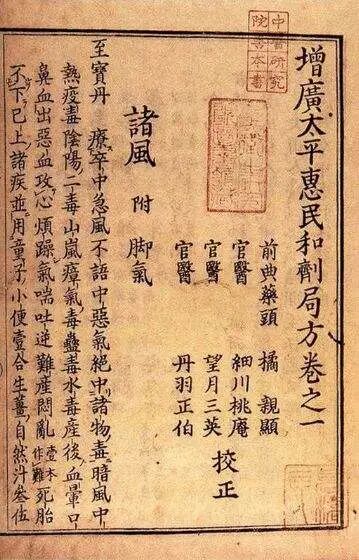 增廣太平惠民和劑局方卷之一
前典藥頭　橘　親顯
官醫　細川桃庵
官醫　望月三英
官醫　丹羽正伯
校正
諸風　附　脚氣
至寶丹　療卒中急風不語中惡氣絕中諸物毒暗風中
熱疫毒陰陽二毒山嵐瘴氣毒蠱毒水毒產後血暈口
鼻血出惡血攻心煩躁氣喘吐逆難產悶亂壹本作難死胎
不下已上諸疾並用童子小便壹合生薑自然汁叄伍
中醫研究
院善本書